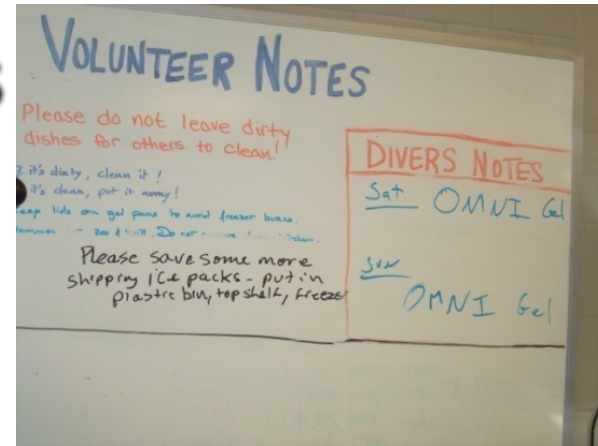 VOLUNTEER NOTES
Please do not leave dirty
dishes for others to clean!
it's dirty, clean it!
it's clean, put it away!
keep lids on gel pans to avoid freezer burns.
Do not
Please save some more
shipping ice packs - put in
plastic bin, top shelf, freezer
DIVERS NOTES
Sat OMNI Gel
Sun
OMNI Gel